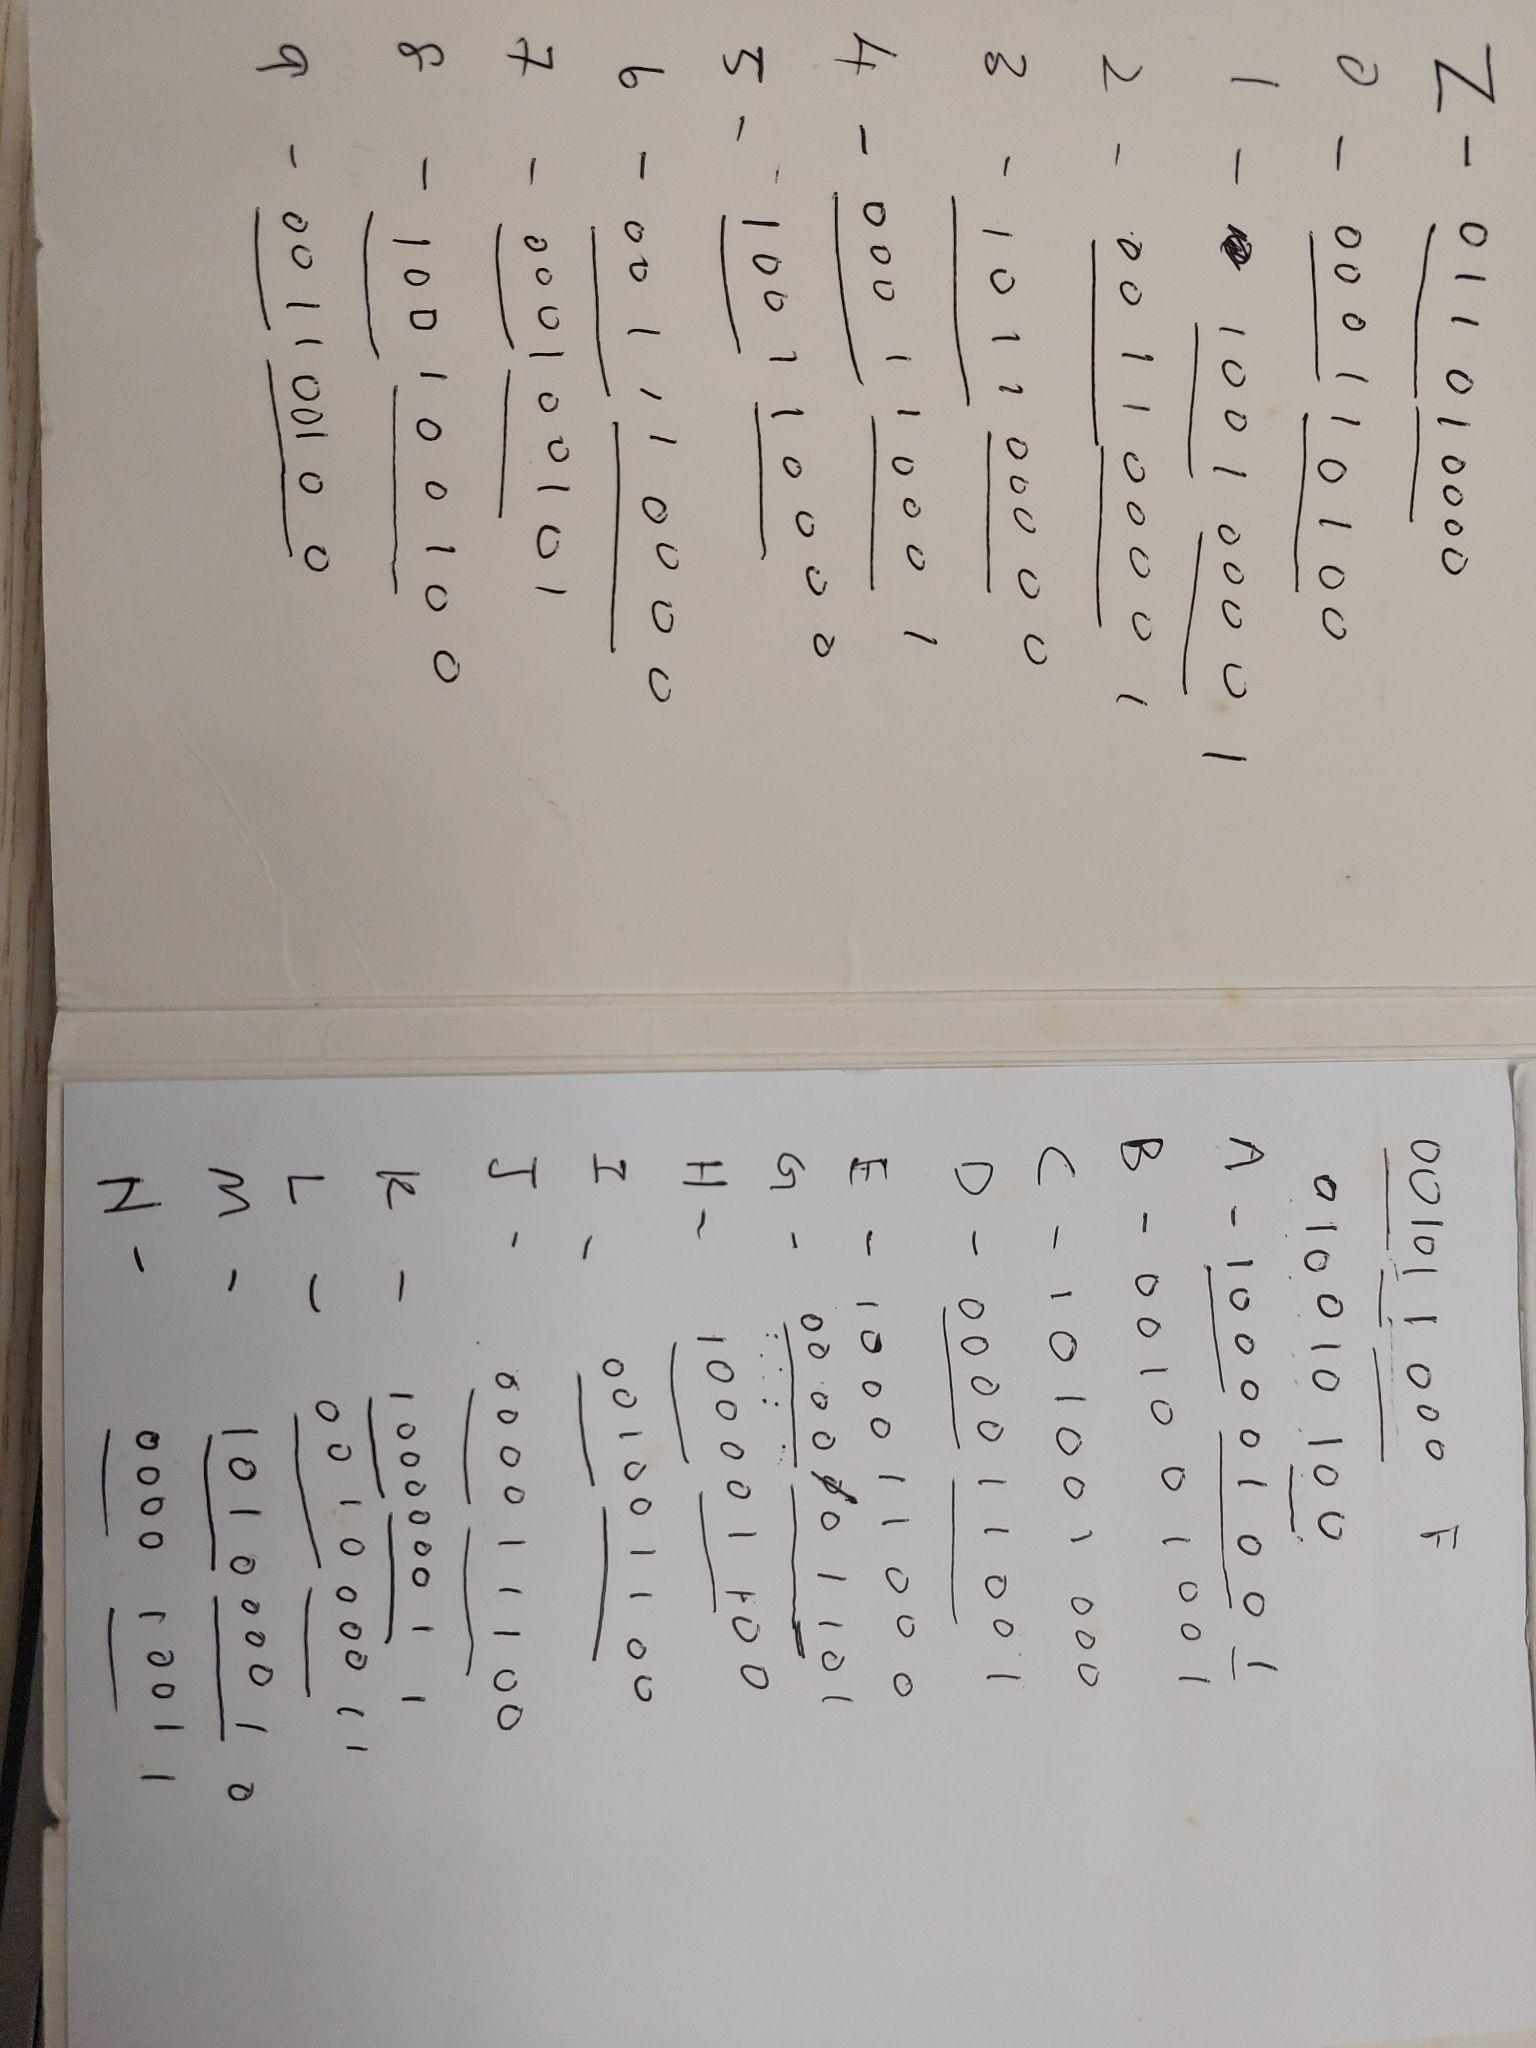 Z - 011010000
0 - 000110100
1 - 100100001
2 - 001100001
3 - 101100000
4 - 000110001
5 - 100110000
6 - 001110000
7 - 000100101
8 - 100100100
9 - 001100100
001011000 F
010010100
A - 100001001
B - 001001001
C - 101001000
D - 000011001
E - 100011000
G - 000001101
H - 100001100
I - 001001100
J - 000011100
K - 100000011
L - 001000011
M - 101000010
N - 000010011